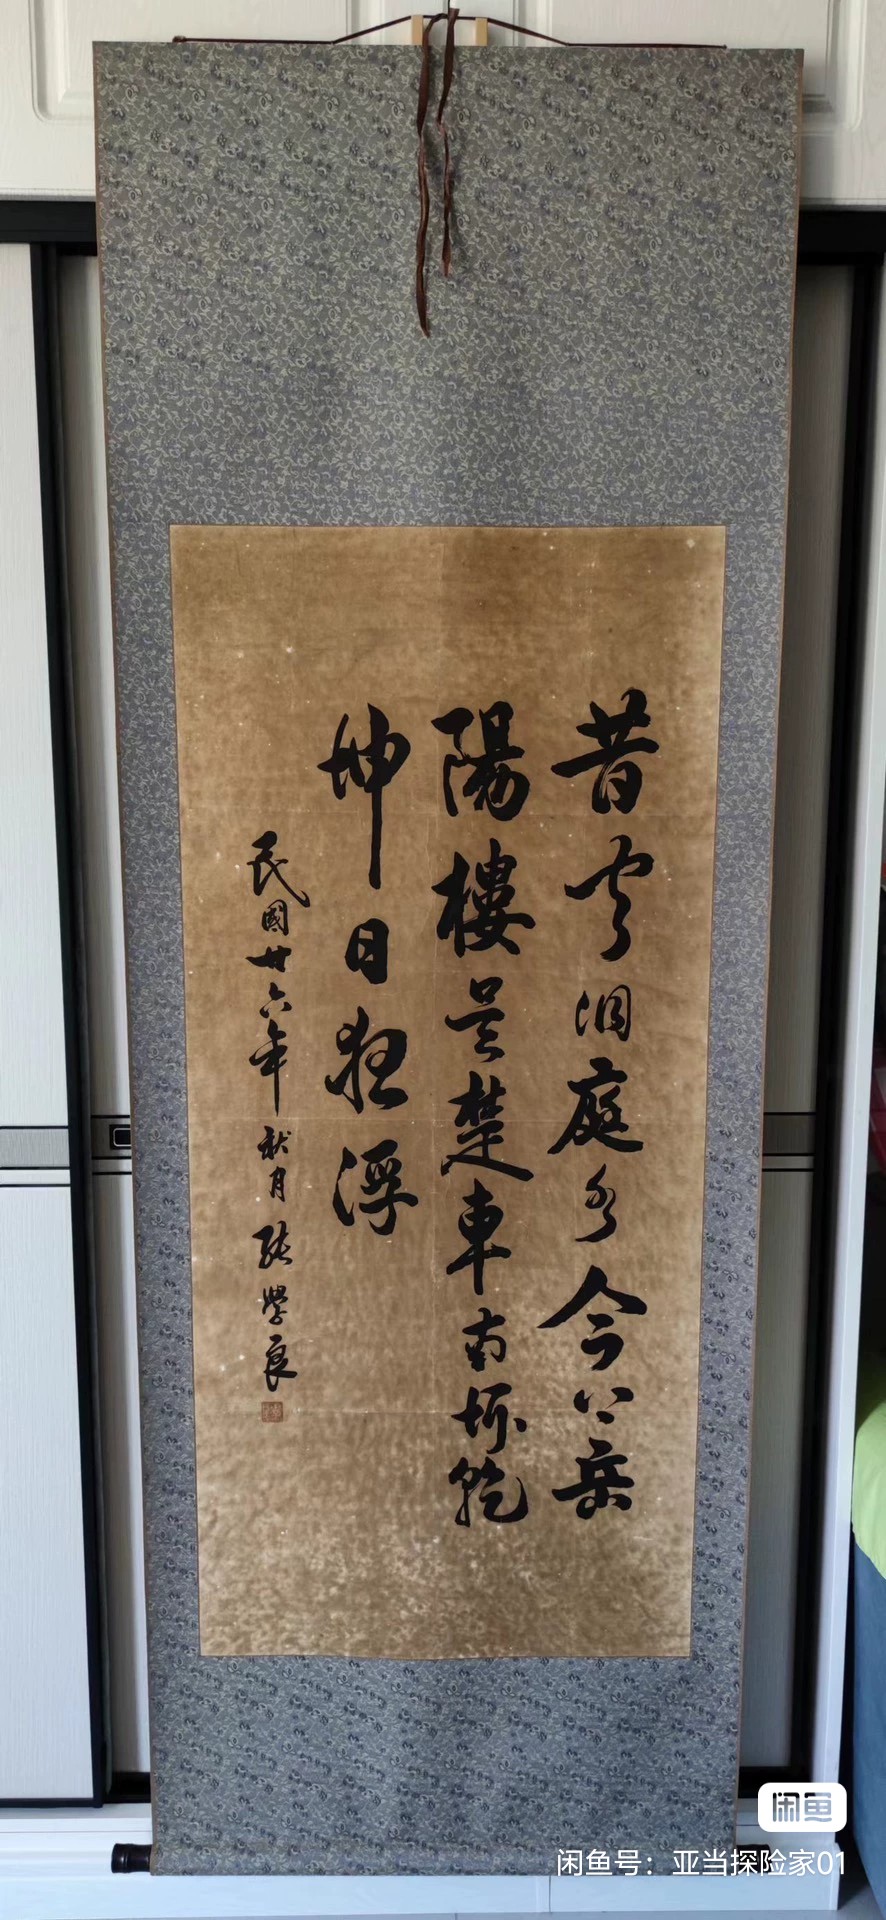 昔穴洄庭水今上岳
陽樓吴楚車南坼乾
坤日夜浮
民國廿六年秋月張學良
闲鱼
闲鱼号：亚当探险家01